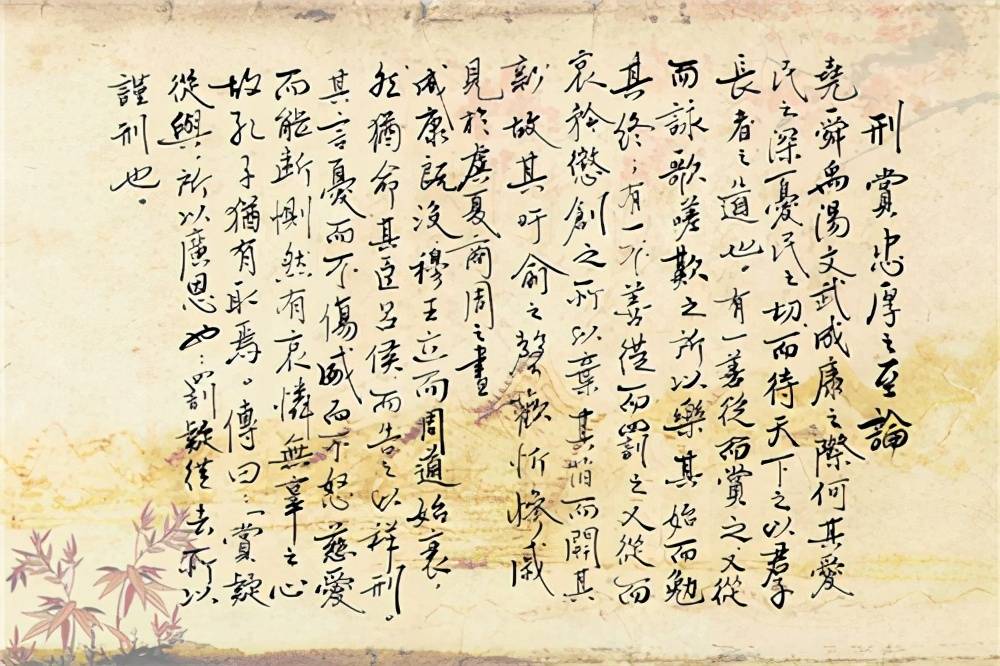 刑賞忠厚之至論
堯舜禹湯文武成康之際何其愛
民之深憂民之切而待天下之以君子
長者之道也。有一善從而賞之又從
而詠歌嗟歎之所以樂其始而勉
其終；有一不善從而罰之又從而
哀矜懲創之所以棄其舊而開其
新故其吁俞之聲歡忻慘戚
見於虞夏商周之書
成康既沒穆王立而周道始衰，
然猶命其臣呂侯而告之以祥刑。
其言憂而不傷威而不怒慈愛
而能斷惻然有哀憐無辜之心
故孔子猶有取焉。傳曰：「賞疑
從與，所以廣恩也；罰疑從去所以
謹刑也。